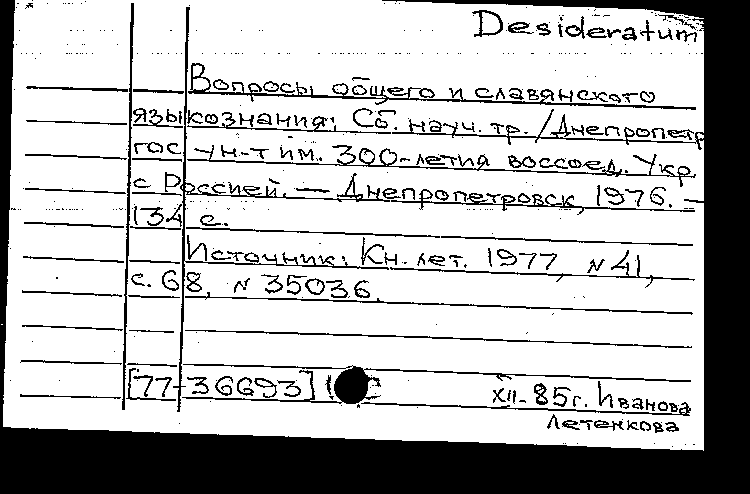 Desideratum
Вопросы общего и славянского
языкознания: Сб. науч. тр. / Днепропетр
гос ун-т им. 300-летия воссоед. Укр.
с Россией. — Днепропетровск, 1976. —
134 с.
Источник: Кн. лет. 1977, N 41,
с. 68, N 35036.
[77-36693]
XII-85г. Иванова
Летенкова